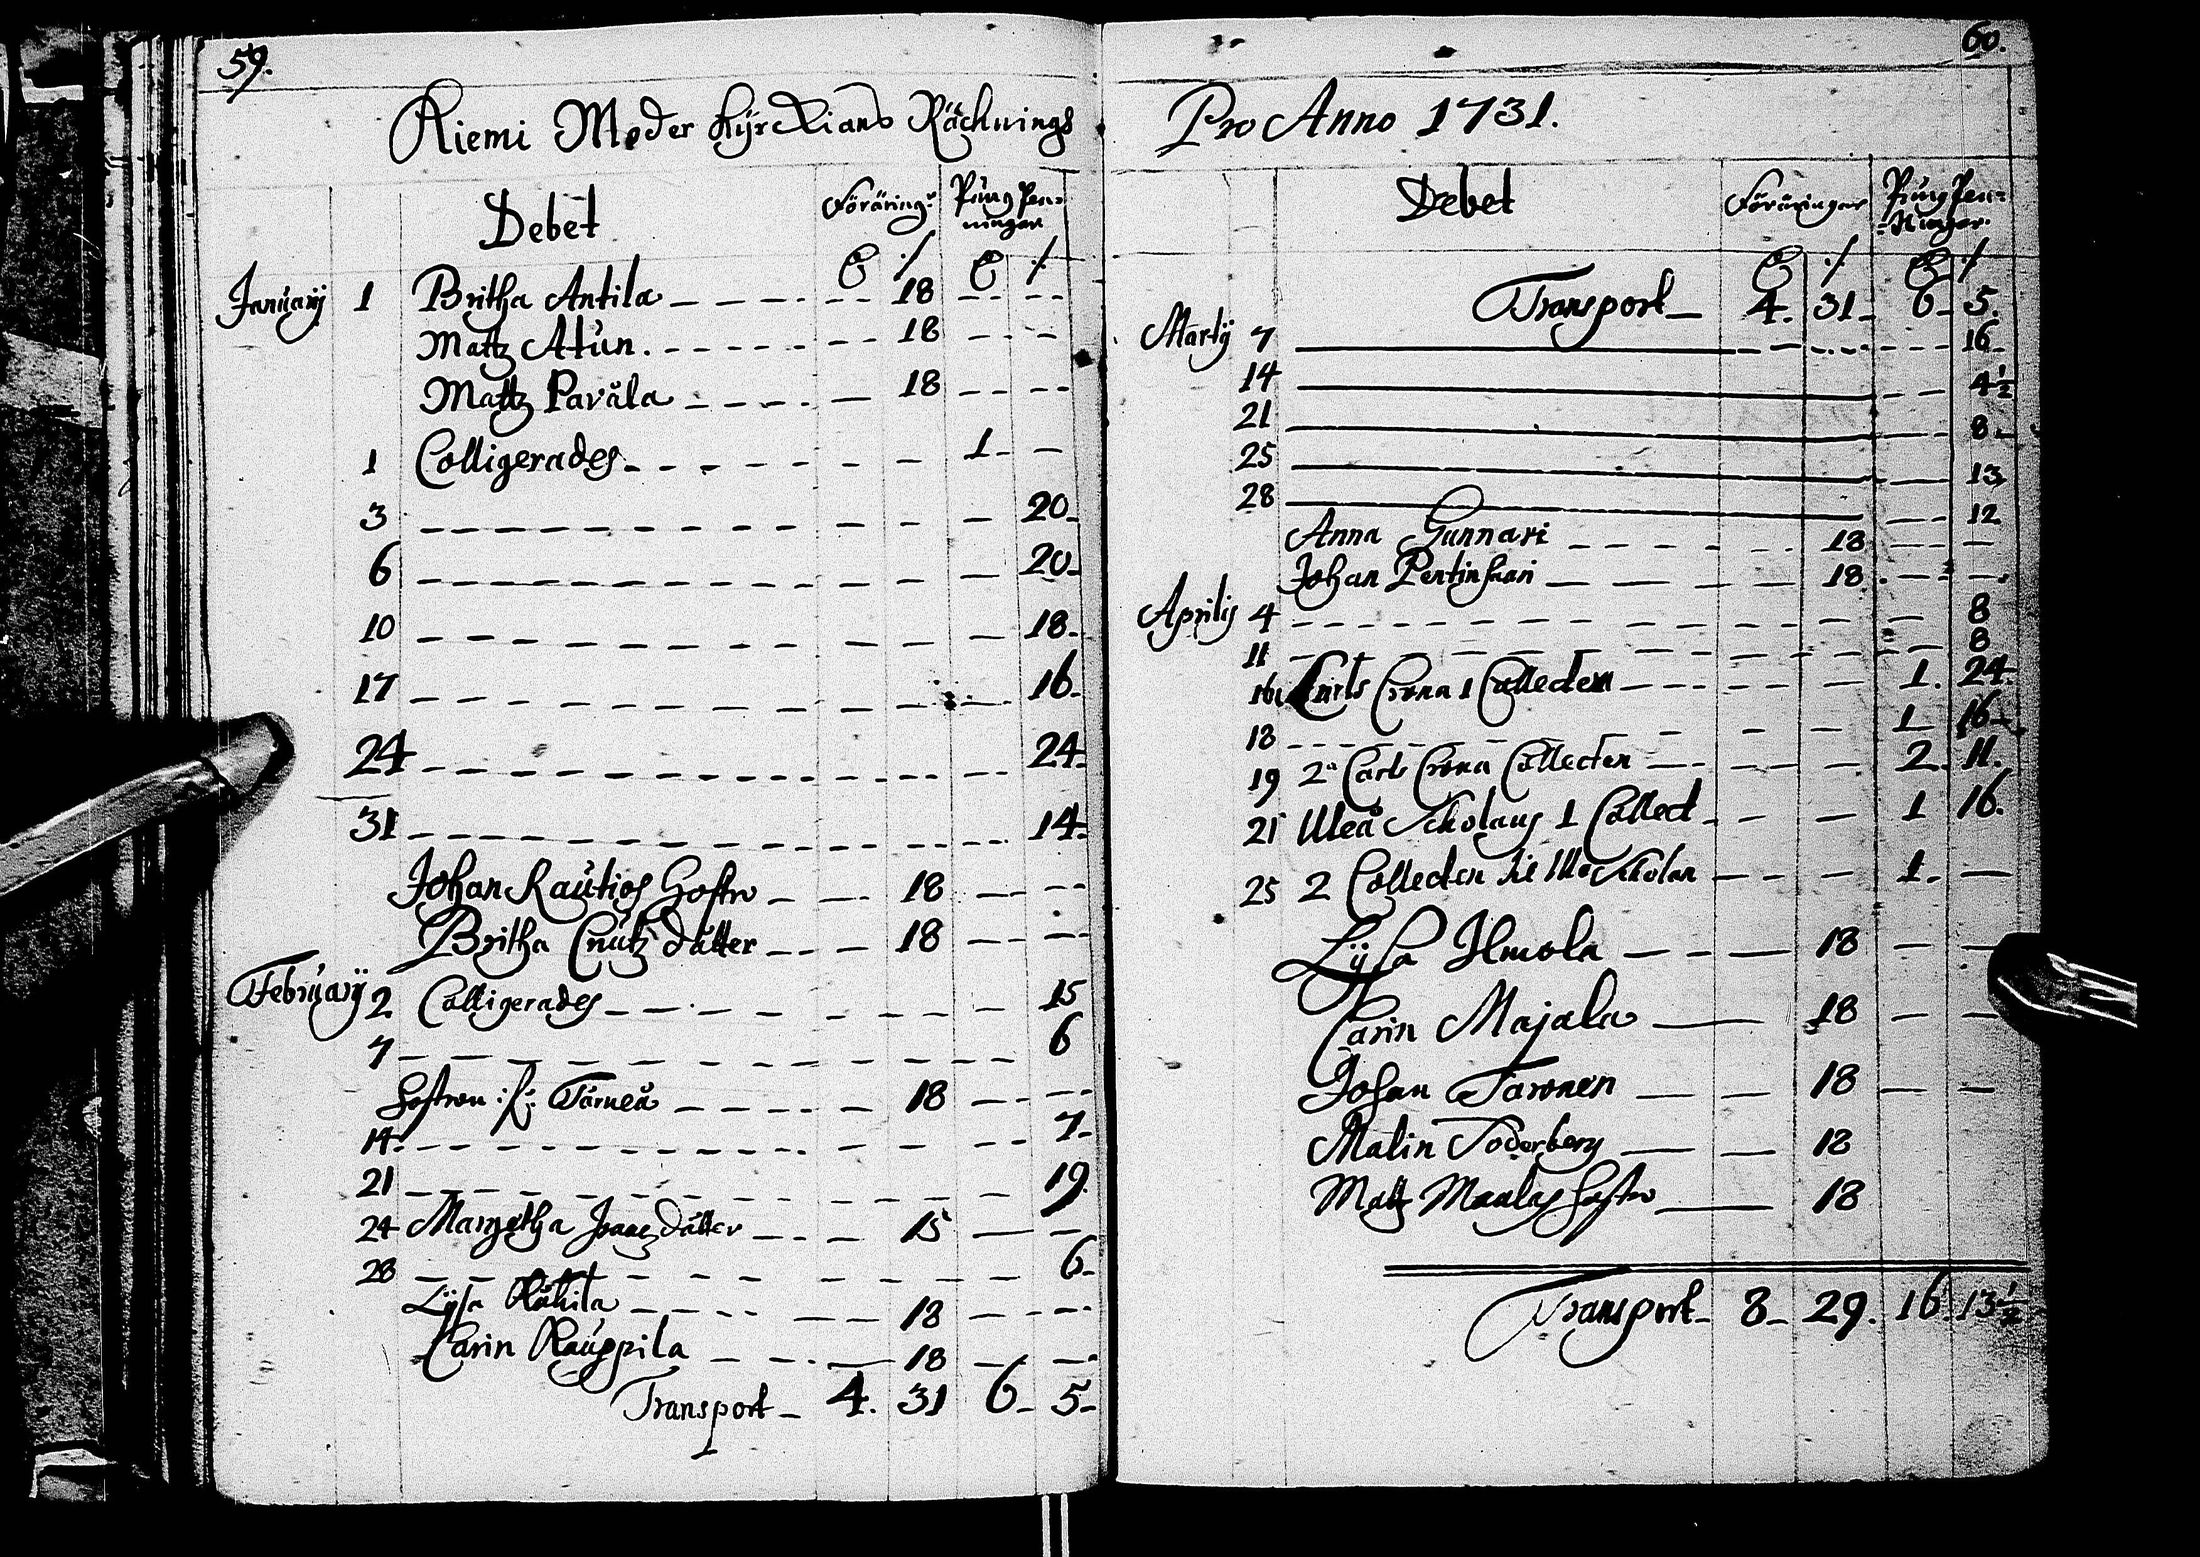 59.
Kiemi Moder Kyrckians Räcknings
Debet Föräring:r Pung Pen=
ningar
January 1 Britha Antila 18
Mattz Atun. 18
Mattz Pavåla 18
1 Colligerades 1
3 20
6 20
10 18
17 16
24 24
31 14
Johan Rautios Hostro 18
Britha Cnutz dåtter 18
February 2 Colligerades 15
7 6
Hostron Tårneå 18
14 7
21 19
24 Margetha Isaacz dåtter 15
28 6
Lysa 18
Carin Kauppila 18
Transport 4. 31 6 5
60.
Pro Anno 1731.
Debet Föräringar Pung Pen=
=Ningar.
Transport 4. 31 6 5.
Martij 7 16
14 4½
21 8
25 13
28 12
Anna Gunnari 18
Johan 18
Aprilis 4 8
11 8
16 Carls Crona 1 Collecten 1. 24
18 1 16
19 2a Carls Crona Collecten 2. 11.
21 Uleå Scholans 1 Collect 1 16.
25 2 Collecten til Ulo Scholan 1.
Lysa Ilmola 18
Carin Majala 18
Johan Taronen 18
Malin Söderberg 18
Mattz Maalas Hostro 18
Transport 8 29. 16 13½